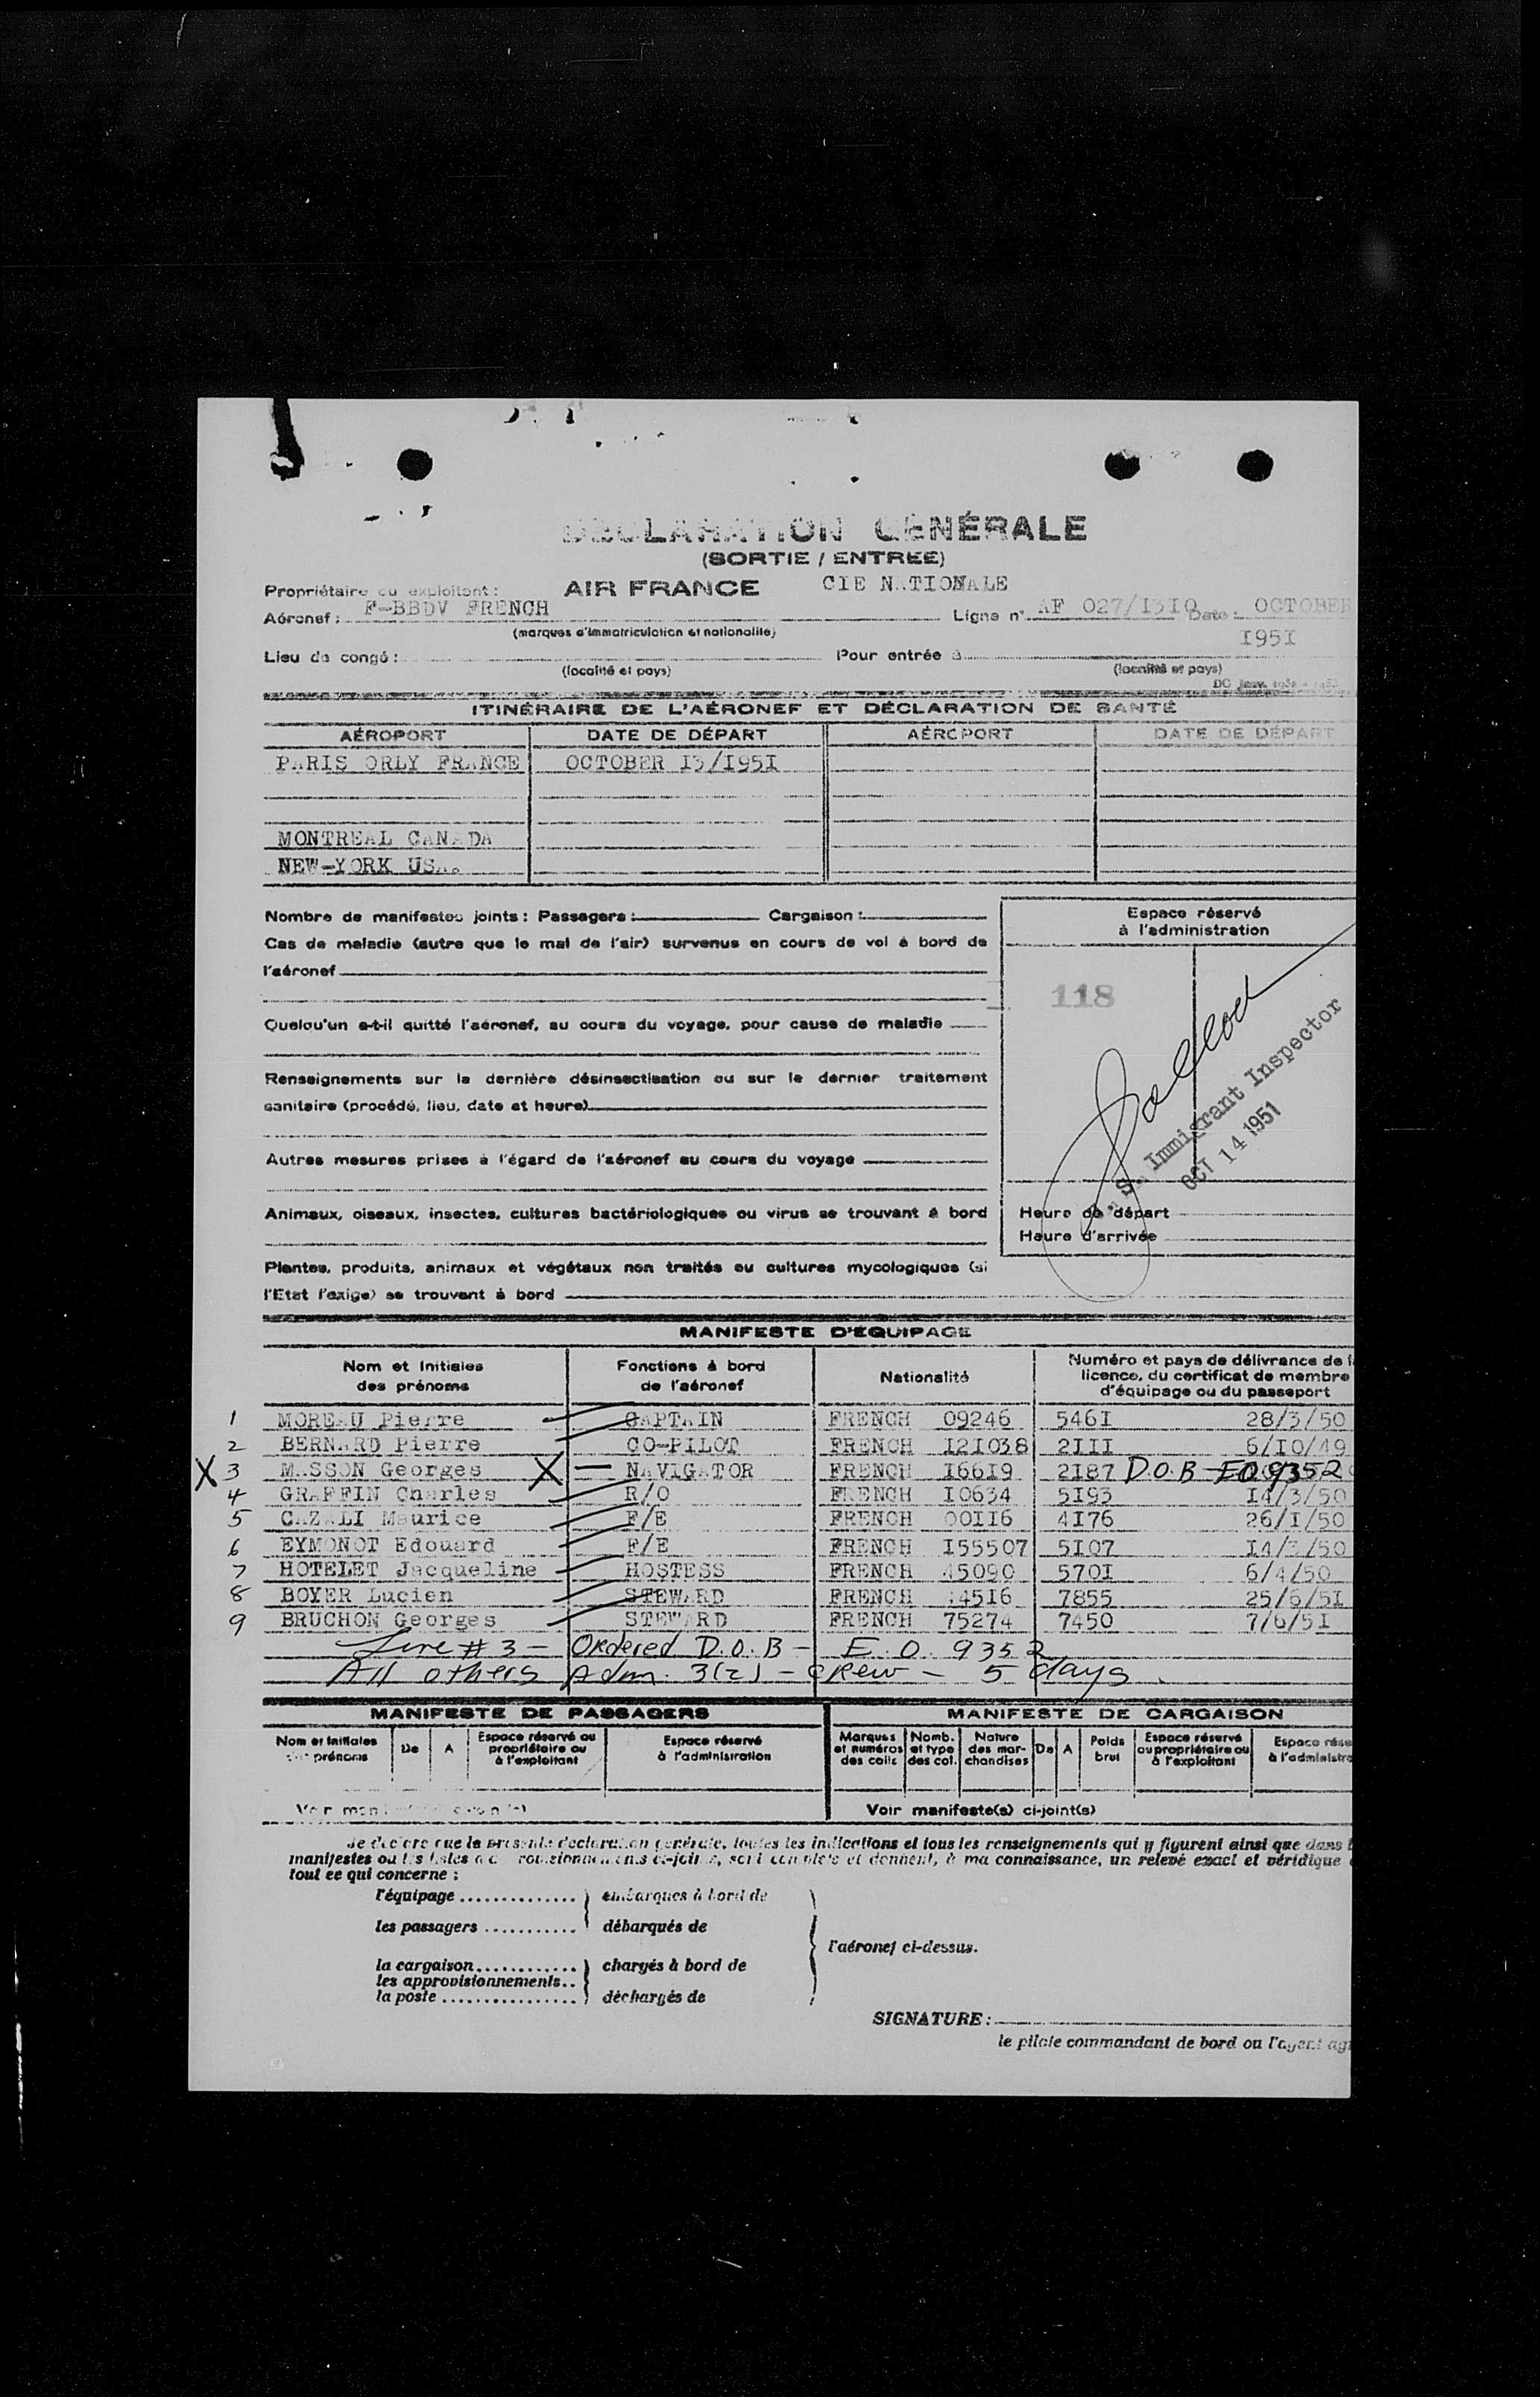 DÉCLARATION GÉNÉRALE
(SORTIE / ENTRÉE)
Propriétaire ou exploitant : AIR FRANCE CIE NATIONALE
Aéronef : F-BBDV FRENCH Ligne n° AF 027/I3IO Date : OCTOBER
(marques d'immatriculation et nationalité)
I95I
Lieu de congé : Pour entrée à
(localité et pays) (localité et pays)
ITINÉRAIRE DE L'AÉRONEF ET DÉCLARATION DE SANTÉ
AÉROPORT DATE DE DÉPART AÉROPORT DATE DE DÉPART
PARIS ORLY FRANCE OCTOBER I3/I95I
MONTREAL CANADA
NEW-YORK USA.
Nombre de manifestes joints : Passagers : Cargaison :
Espace réservé
à l'administration
Cas de maladie (autre que le mal de l'air) survenus en cours de vol à bord de
l'aéronef
118
Quelqu'un a-t-il quitté l'aéronef, au cours du voyage, pour cause de maladie
Renseignements sur la dernière désinsectisation ou sur le dernier traitement
sanitaire (procédé, lieu, date et heure)
S. Immigrant Inspector
OCT 14 1951
Autres mesures prises à l'égard de l'aéronef au cours du voyage
Animaux, oiseaux, insectes, cultures bactériologiques ou virus se trouvant à bord
Heure de départ
Heure d'arrivée
Plantes, produits, animaux et végétaux non traités ou cultures mycologiques (si
l'Etat l'exige) se trouvant à bord
MANIFESTE D'ÉQUIPAGE
Nom et Initiales des prénoms Fonctions à bord de l'aéronef Nationalité Numéro et pays de délivrance de la licence, du certificat de membre d'équipage ou du passeport
1 MOREAU Pierre CAPTAIN FRENCH 09246 546I 28/3/50
2 BERNARD Pierre CO-PILOT FRENCH I2I038 2III 6/IO/49
X 3 MASSON Georges X — NAVIGATOR FRENCH I66I9 2I87 D.O.B - EO 9352
4 GRAFFIN Charles R/O FRENCH I0634 5I93 I4/3/50
5 CAZALI Maurice F/E FRENCH 00II6 4I76 26/I/50
6 EYMONOT Edouard F/E FRENCH I55507 5I07 I4/3/50
7 HOTELET Jacqueline HOSTESS FRENCH 45090 570I 6/4/50
8 BOYER Lucien STEWARD FRENCH 45I6 7855 25/6/5I
9 BRUCHON Georges STEWARD FRENCH 75274 7450 7/6/5I
Line # 3 - Ordered D.O.B - E.O. 9352
All others Adm. 3(2) - crew - 5 days
MANIFESTE DE PASSAGERS MANIFESTE DE CARGAISON
Nom et Initiales des prénoms De A Espace réservé ou propriétaire ou à l'exploitant Espace réservé à l'administration Marques et numéros des colis Nomb. et type des col. Nature des marchandises De A Poids brut Espace réservé au propriétaire ou à l'exploitant Espace rése à l'administra
Voir manifeste(s) ci-joint(s) Voir manifeste(s) ci-joint(s)
Je déclare que la présente déclaration générale, toutes les indications et tous les renseignements qui y figurent ainsi que dans
manifestes ou les listes d'approvisionnements ci-joints, sont complets et donnent, à ma connaissance, un relevé exact et véridique
tout ce qui concerne :
l'équipage embarqués à bord de
les passagers débarqués de
l'aéronef ci-dessus.
la cargaison chargés à bord de
les approvisionnements
la poste déchargés de
SIGNATURE :
le pilote commandant de bord ou l'agent